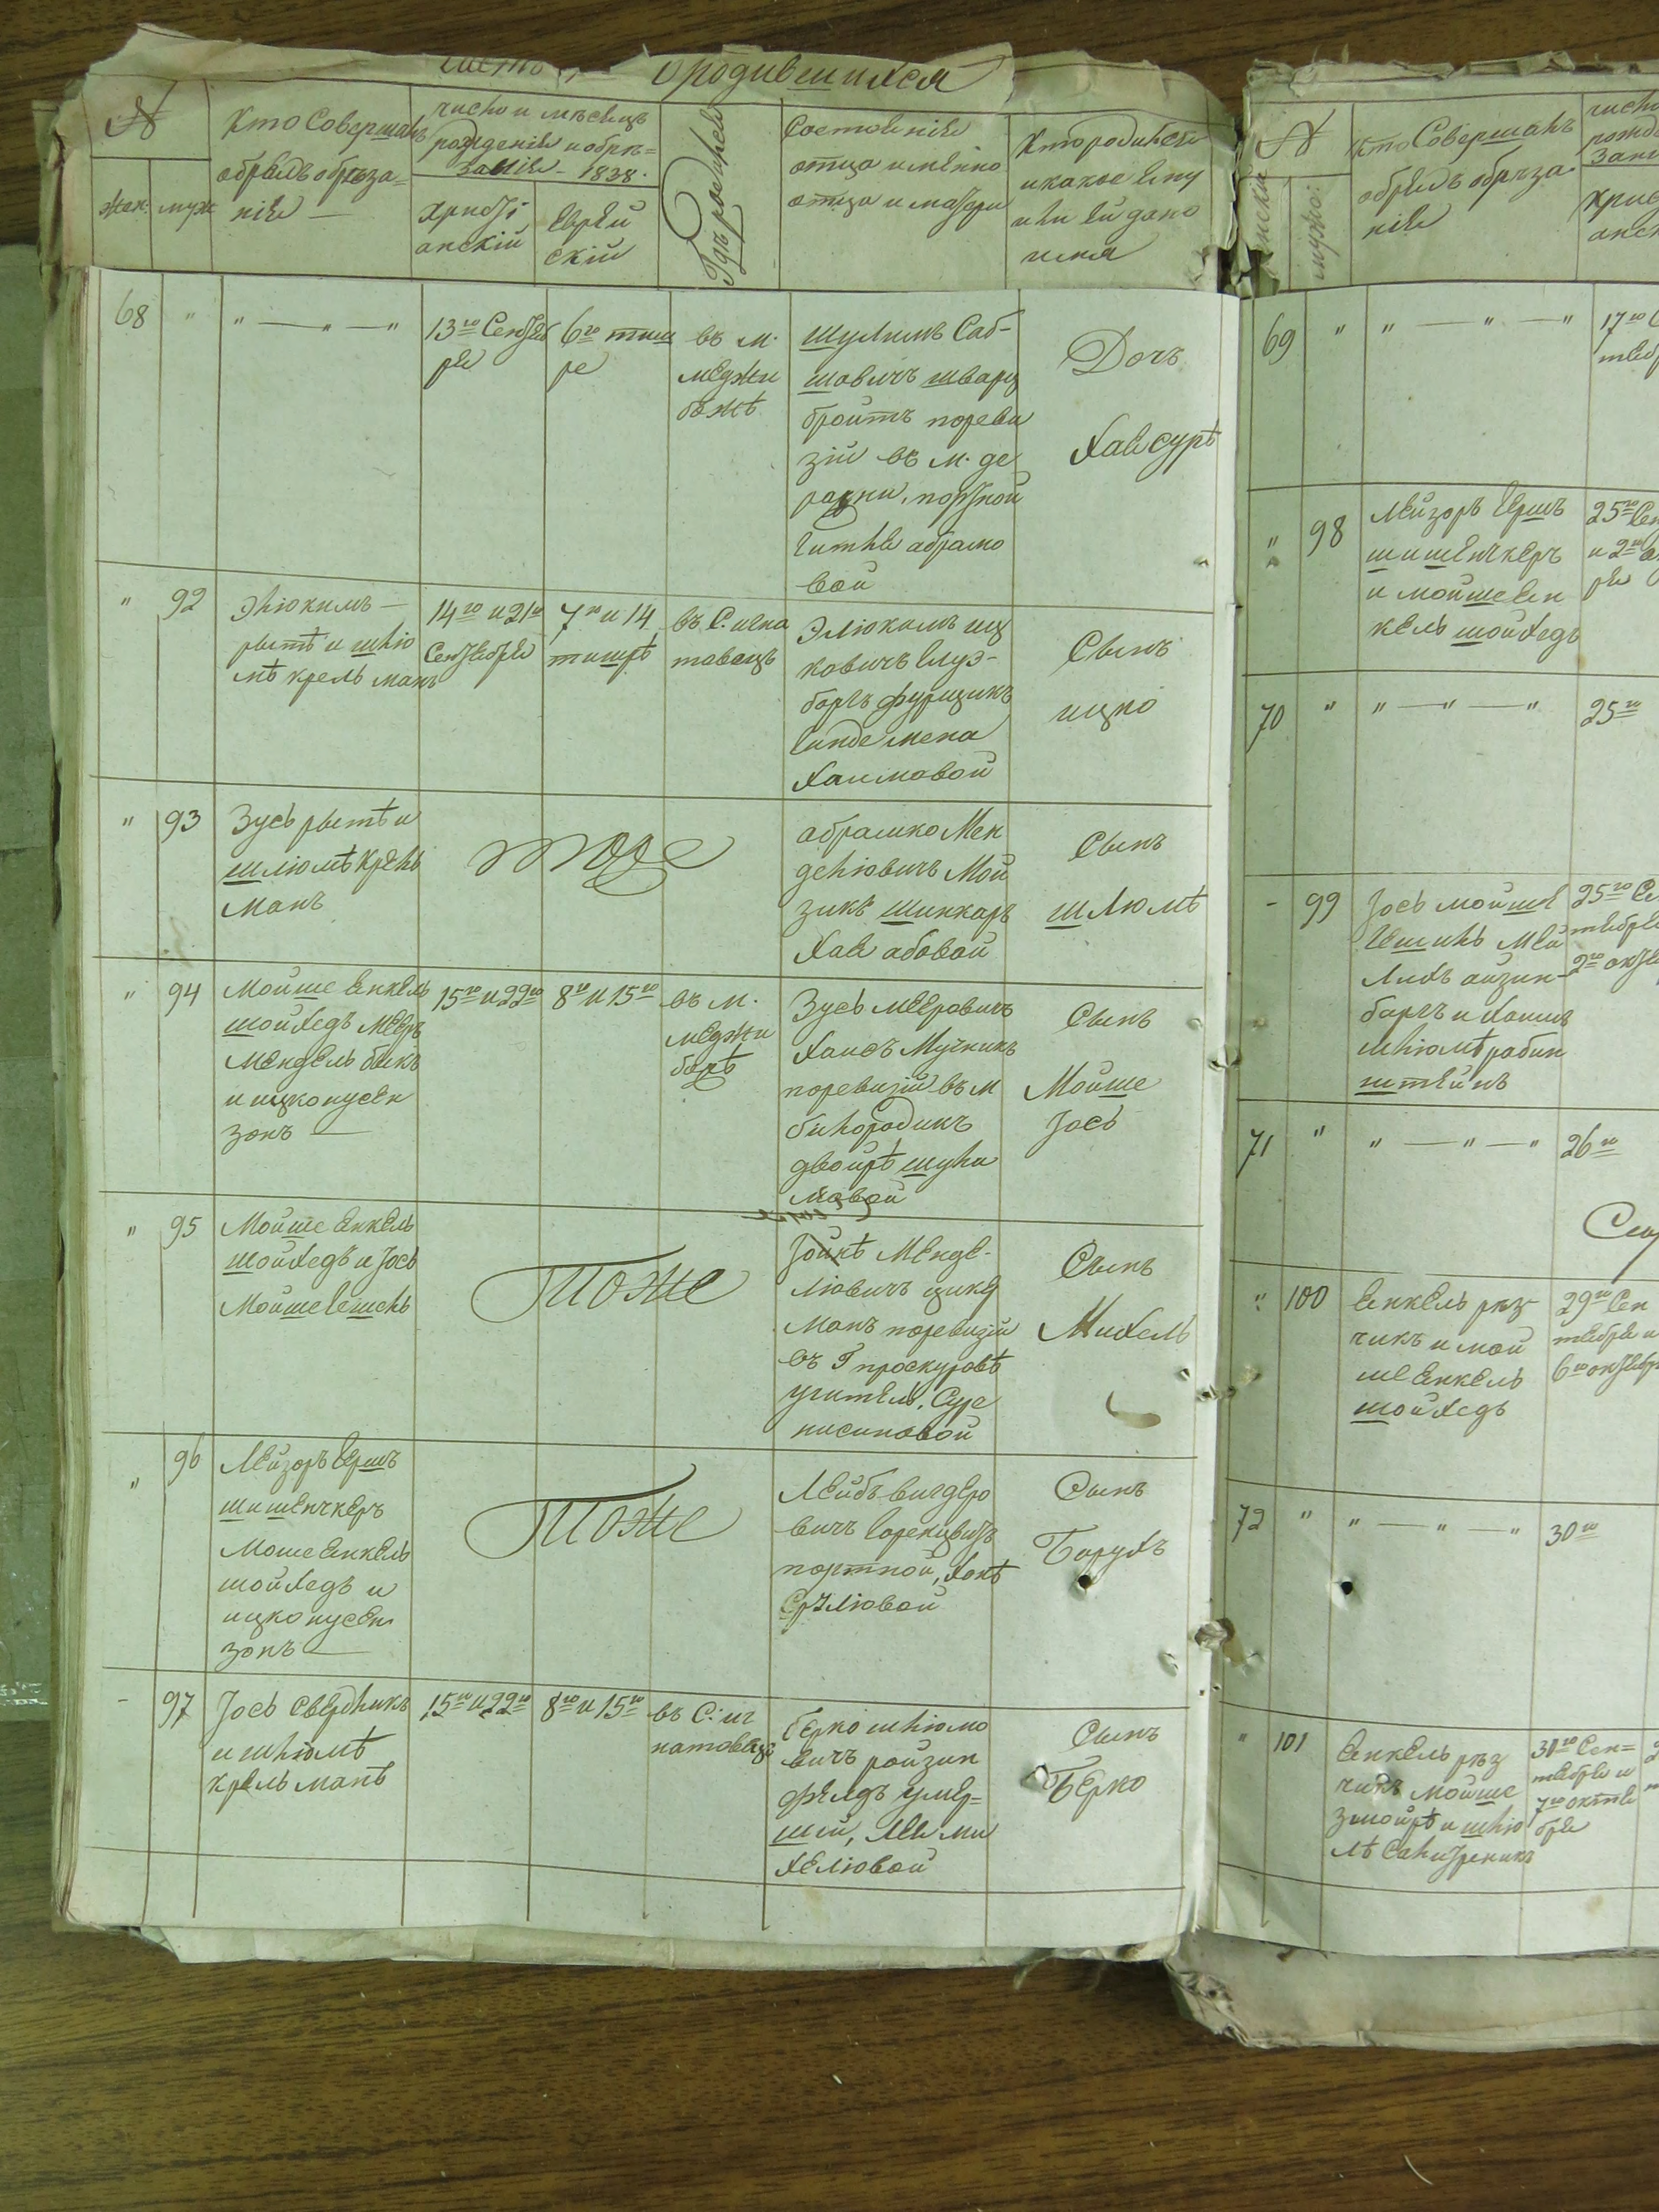 о родившихся
№
жен.
муж
Кто Совершалъ
обрядъ обрѣза=
нія —
число и мѣсяцъ
рожденія и обрѣ=
занія – 1838.
Христі
анскій
Еврей
скій
Гдѣ родился
Состояніе
отца имянно
отца и матери
Кто родился
и какое ему
или ей дано
имя
68
"
" — " — "
13го Сентяб
ря
6го тиш
ре
въ м.
меджи
божѣ
шулимъ Саб-
шовичъ шварц
бройтъ пореви
зіи въ м. де
ражни, портной
Гитля абрамо
вой
Дочъ
Хая сурѣ
"
92
Элюкимъ —
рытѣ и шлю
мѣ крель манъ
14го и 21го
Сентября
7го и 14
тишрѣ
въ С. игна
товецъ
Элюкимъ иц
ковичъ
фурщикъ
Хаимовой
Сынъ
ицко
"
93
Зусь рытѣ и
шлюмѣ крель
манъ
тоже
абрамко Мен
делювичъ Мой
зикъ шинкаръ
Хая абовой
Сынъ
шлюмѣ
"
94
Мойше Енкель
шойхедъ Мееръ
Мендель быкъ
и ицко нусен
зонъ —
15го и 22го
8го и 15го
въ м.
меджи
божѣ
Зусь мееровичъ
Хаисъ Мучникъ
поревизіи въ м
билгородикъ
двойрѣ шули
мовой
Сынъ
Мойше
Іось
"
95
Мойше Енкель
шойхедъ и Іось
Мойше
Тоже
Менде-
лювичъ цикер
манъ поревизіи
въ Г проскуровѣ
учитель, Суре
нисиновой
Сынъ
Михель
"
96
Лейзоръ Гершъ
шишенчкеръ
Моше Енкель
шойхедъ и
ицко нусен
зонъ —
Тоже
Лейбъ вигдеро
вичъ
портной, Хонѣ
Срулювой
Сынъ
Борухъ
-
97
Іось Свердликъ
и шлюмѣ
крель манъ
15го и 22го
8го и 15го
въ С: иг
натовецъ
берко шлюмо
вичъ ройзин
фелдъ умер=
шій, Лея ми
хелювой
Сынъ
Бѣрко
№
мужс:
кто Совершалъ
обрядъ обрѣза
нія
69
"
" — " — "
17го
"
98
Лейзоръ Гершъ
шишенчкеръ
и мойше Ен
кель шойхедъ
25го Сен
и 2го
ря
70
"
" — " — "
25го
-
99
Іось мойше
Лихъ айзин-
баргъ и Хаимъ
шлюмѣ рабин
штейнъ
25го Се
тября
2го октя
71
"
" — " — "
26го
"
100
Енкель рѣз
чикъ и мой
ше Енкель
шойхедъ
29го Сен
тября и
6го октябр
72
"
" — " — "
30го
"
101
Енкель рѣз
чикъ Мойше
змойрѣ и шлю
лѣ
Сен=
тября и
7го октя
бря